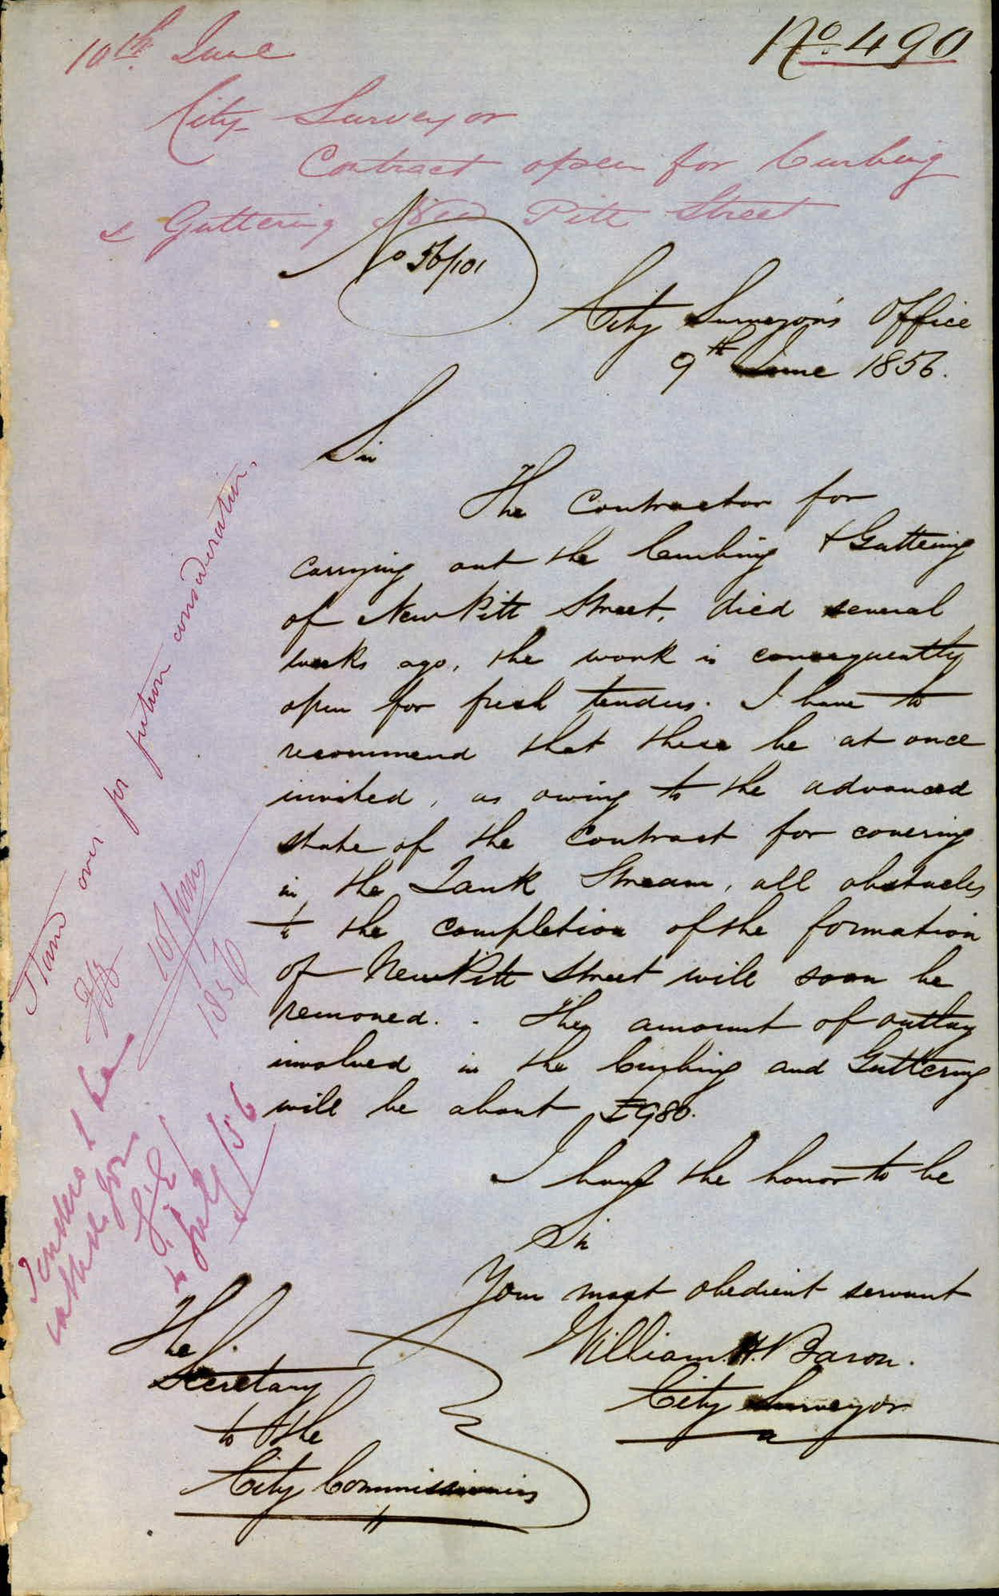 No. 490
10th June
City Surveyor
Contract open for Curbing
& Guttering New Pitt Street
No 56/101
City Surveyor's Office
9th June 1856.
Sir
The Contractor for
carrying out the Curbing & Guttering
of New Pitt Street, died several
weeks ago, the work is consequently
open for fresh tenders. I have to
recommend that these be at once
invited, as owing to the advanced
state of the Contract for covering
in the Tank Stream, all obstacles
to the completion of the formation
of New Pitt Street will soon be
removed. - The amount of outlay
involved in the Curbing and Guttering
will be about £980.
I have the honor to be
Sir
Your most obedient servant
William H. Baron.
City Surveyor
The
Secretary
to the
City Commissioners
Stand over for future consideration.
10/June
1856
Tenders to be
called for
4 July/56